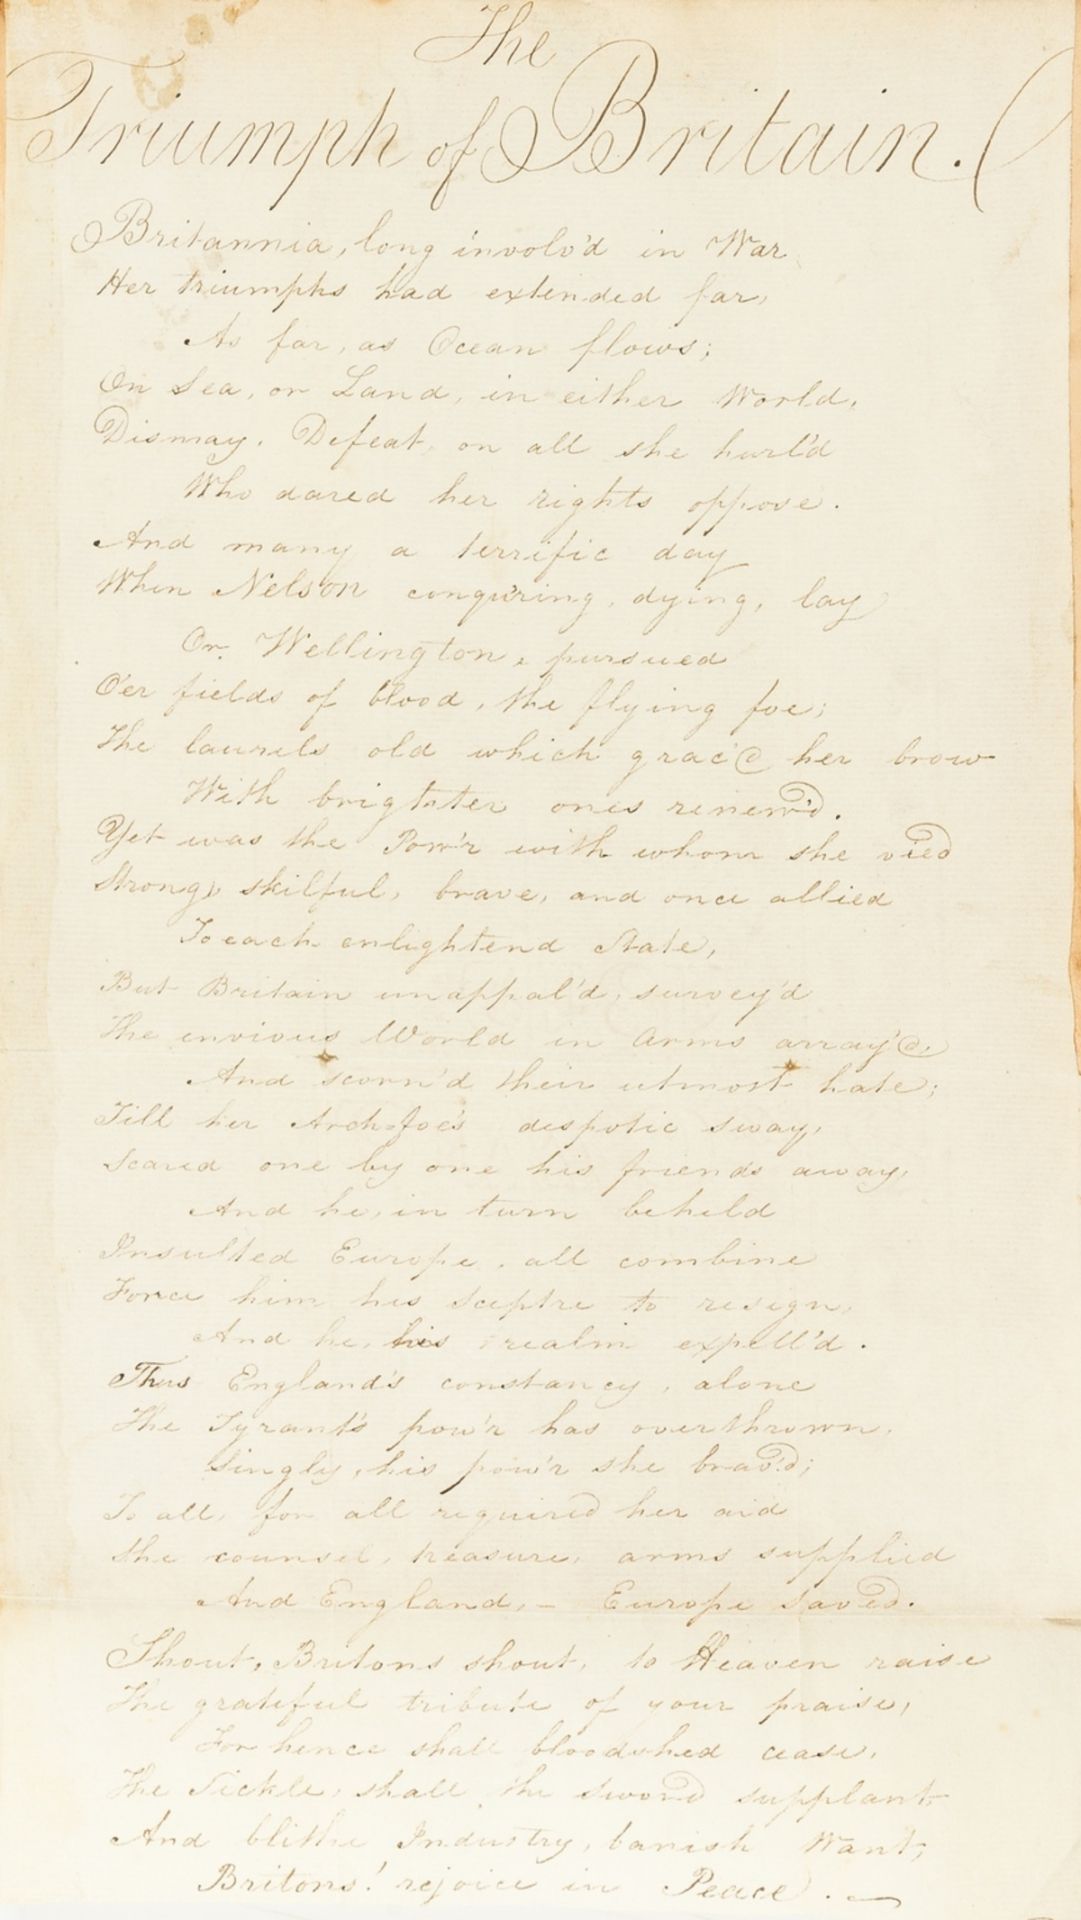 The
Triumph of Britain.
Britannia, long involv'd in War
Her triumphs had extended far,
As far, as Ocean flows;
On Sea, or Land, in either World,
Dismay, Defeat, on all she hurl'd
Who dared her rights oppose.
And many a terrific day
When Nelson conqu'ring, dying, lay
Or, Wellington, pursued
O'er fields of blood, the flying foe;
The laurels old which grac'd her brow
With brighter ones renew'd.
Yet was the Pow'r with whom she vied
Strong, skilful, brave, and once allied
To each enlightend State,
But Britain unappal'd, survey'd
The envious World in Arms array'd,
And scorn'd their utmost hate;
Till her Arch-foe's despotic sway,
Scared one by one his friends away,
And he, in turn beheld
Insulted Europe, all combine
Force him his Sceptre to resign,
And he, his realm expell'd.
Thus England's constancy, alone
The Tyrant's pow'r has overthrown,
Singly, his pow'r she brav'd;
To all, for all required her aid
She counsel, treasure, arms supplied
And England, – Europe saved.
Shout, Britons shout, to Heaven raise
The grateful tribute of your praise,
For hence shall bloodshed cease,
The Sickle, shall the Sword supplant,
And blithe Industry, banish Want,
Britons! rejoice in Peace. —